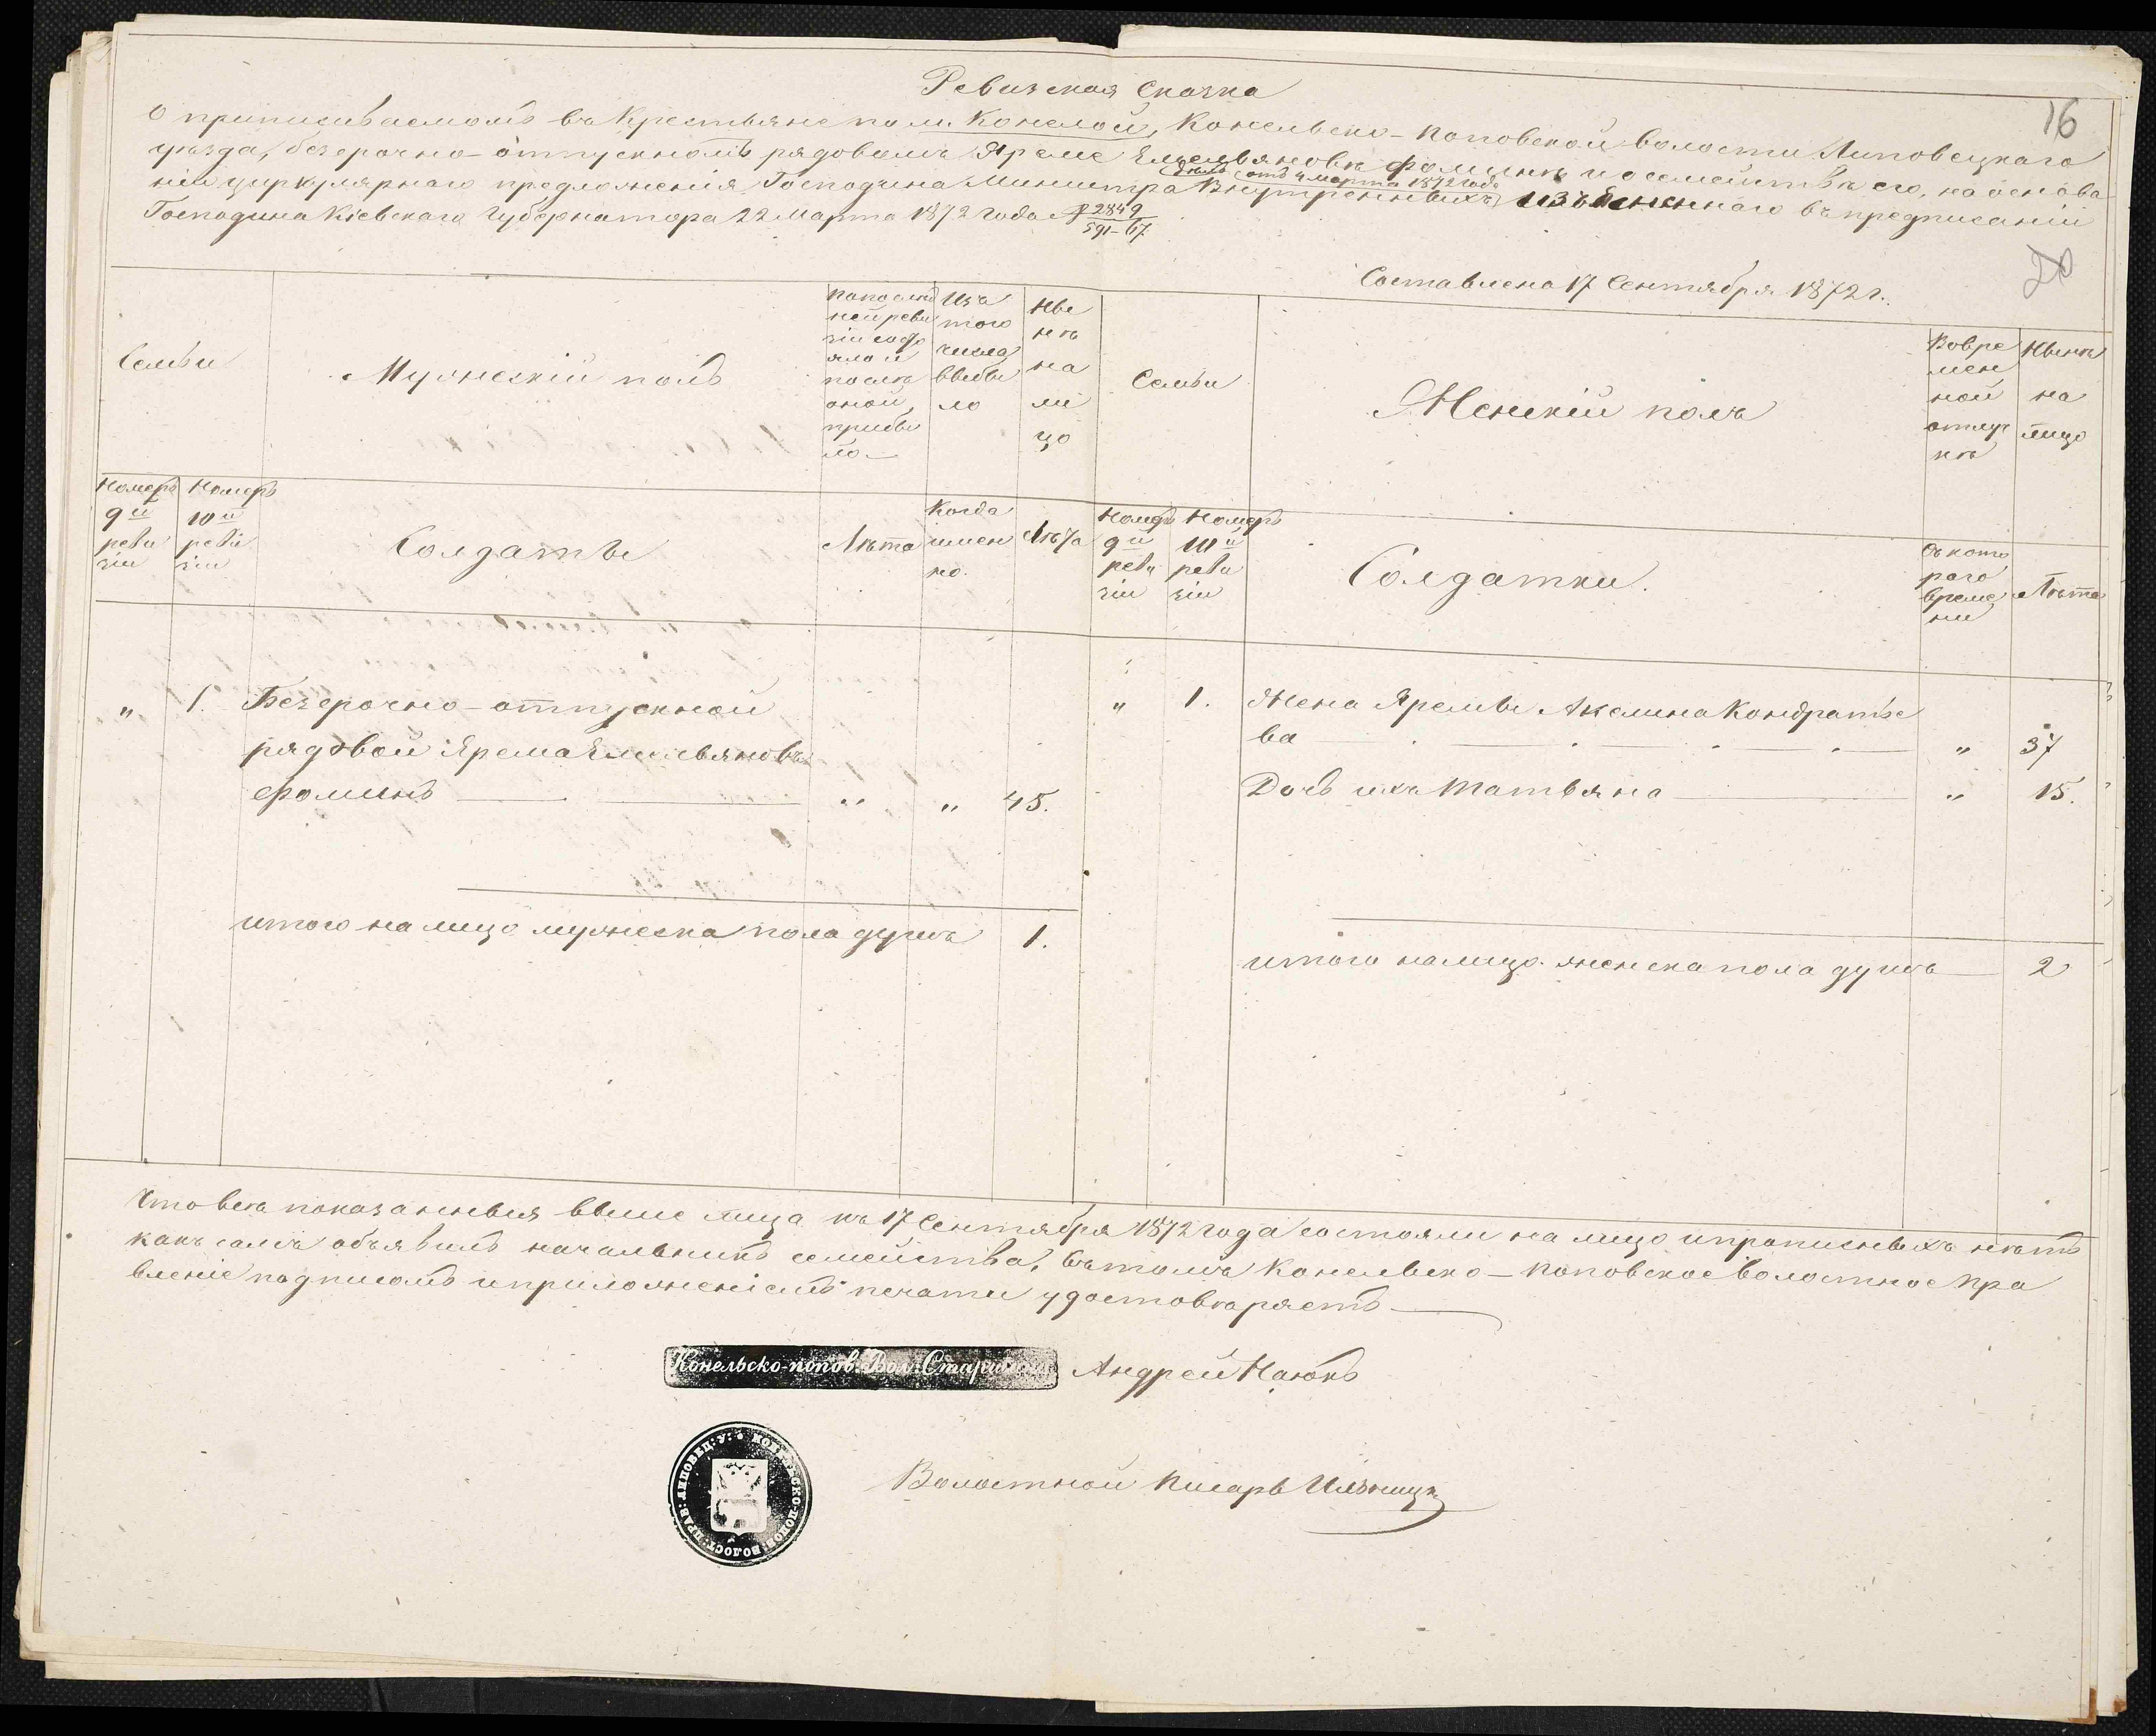 Ревизская Сказка
16
О приписываемомъ въ Крестьяне по м. Конелой, Конельско-Поповской волости Липовецкаго
уѣзда, безсрочно-отпускномъ рядовомъ Яреме Емельяновѣ Фоминѣ и о семействѣ его, на основа
Дѣлъ отъ 4 марта 1872 года
ніи циркулярнаго предложенія Господина Министра Внутреннихъ изъясненнаго въ предписаніи
Господина Кіевскаго Губернатора 22 Марта 1872 года № 2849
591-67
20
Составлена 17 Сентября 1872 г.
Семьи
Мужескій полъ
По послѣд
ней реви
зіи состо
яло и
послѣ
оной
прибы
ло
Изъ
того
числа
выбы
ло
Ны
нѣ
на
ли
цо
Семьи
Женскій полъ
Во вре
мен
ной
отлуч
кѣ
Нынѣ
на
лицо
Номеръ
9й
реви
зіи
Номеръ
10й
реви
зіи
Солдаты
Лѣта
Когда
имен
но.
Лѣта
Номеръ
9й
реви
зіи
Номеръ
10й
реви
зіи
Солдатки.
Съ кото
раго
време
ни
Лѣта
" 1. Безсрочно-отпускной
рядовой Ярема Емельяновъ
Фоминъ — " " 45.
" 1. Жена Яремы Акелина Кондратье
ва — " 37
Дочь ихъ Татьяна — " 15.
итого на лицо мужеска пола душъ 1.
итого на лицо женска пола душъ — 2
Что всѣ показанныя выше лица къ 17 Сентября 1872 года состояли на лицо и прописныхъ нѣтъ
какъ самъ объявилъ начальникъ семейства, въ томъ Конельско-Поповское волостное Пра
вленіе подписомъ и приложеніемъ печати удостовѣряетъ
Конельско-попов. Вол. Старшина Андрей Наюкъ
КОНЕЛЬСКО-ПОПОВ: ВОЛОСТ: ПРАВ: ЛИПОВЕЦ: У:
Волостной Писарь